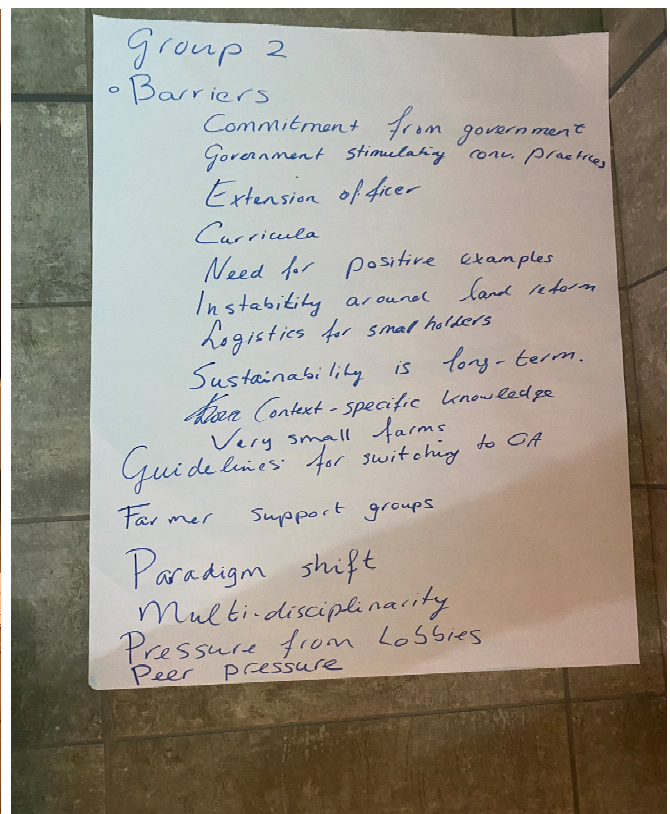 Group 2
Barriers
Commitment from government
Government stimulating conv. practices
Extension officer
Curricula
Need for positive examples
Instability around land reform
Logistics for smallholders
Sustainability is long-term.
Context-specific knowledge
Very small farms
Guidelines for switching to CA
Farmer support groups
Paradigm shift
Multi-disciplinarity
Pressure from Lobbies
Peer pressure